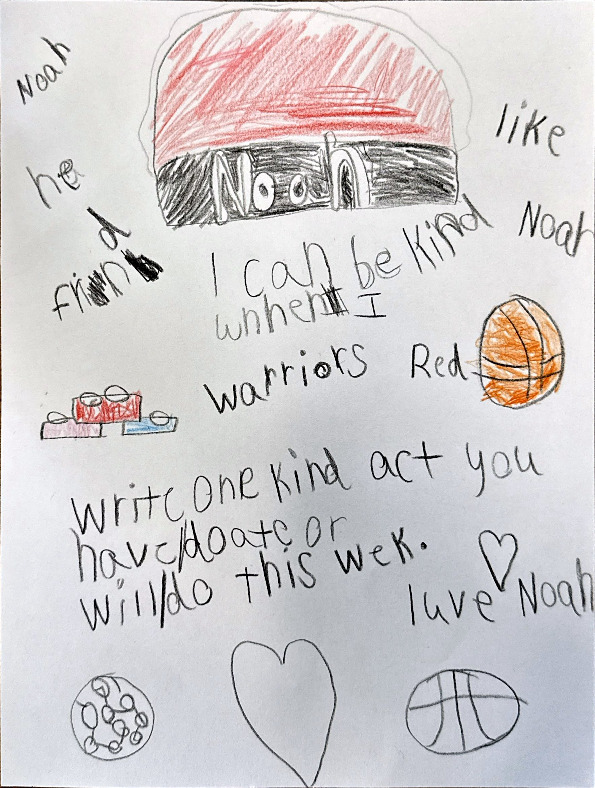 Noah
Noah
like
he
Noah
I can be kind
unhen I
warriors Red
write one kind act you
have/doate or
will/do this wek.
luve Noah